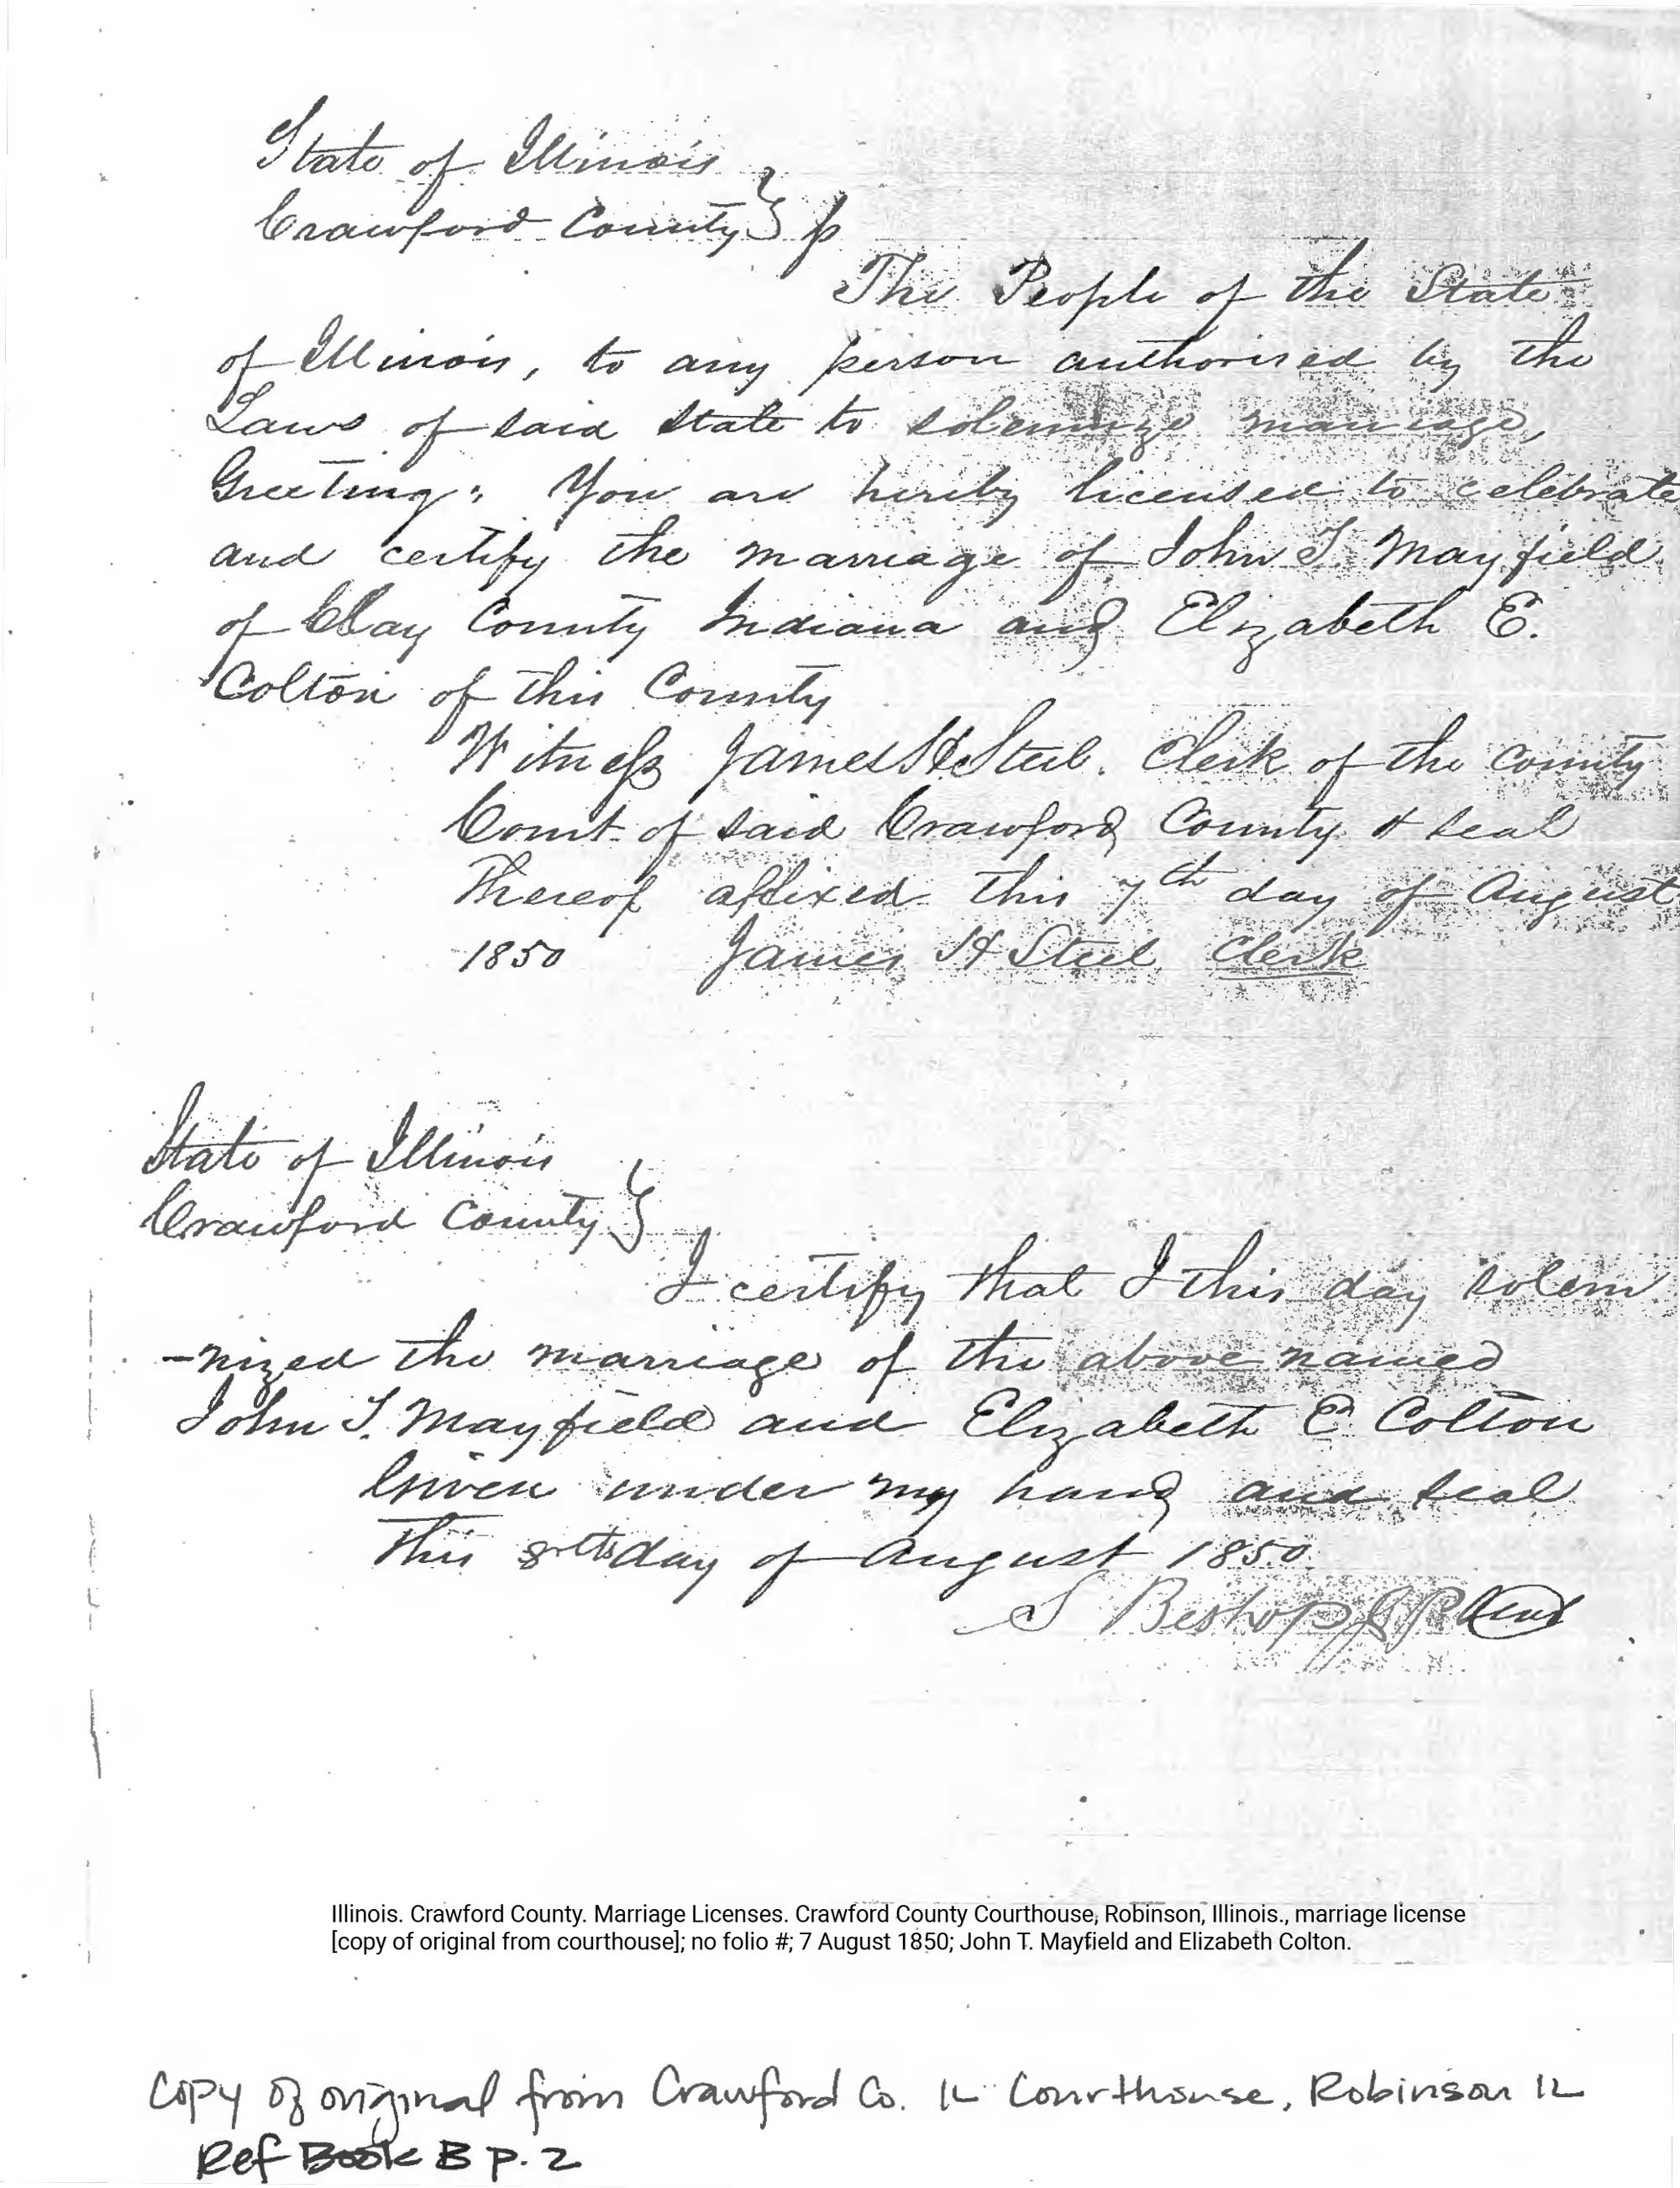 State of Illinois
Crawford County } ss
The People of the State
of Illinois, to any person authorised by the
Laws of said State to solemnize marriage,
Greeting: You are hereby licensed to celebrate
and certify the marriage of John T. Mayfield
of Clay County Indiana and Elizabeth E.
Colton of this County
Witness James H Steel. Clerk of the County
Court of said Crawford County & seal
Thereof affixed this 7th day of August
1850 James H Steel Clerk
State of Illinois
Crawford County }
I certify that I this day solem
-nized the marriage of the above named
John T. Mayfield and Elizabeth E Colton
Given under my hand and seal
This 8th day of August 1850
S Bishop JP Seal
Illinois. Crawford County. Marriage Licenses. Crawford County Courthouse, Robinson, Illinois., marriage license
[copy of original from courthouse]; no folio #; 7 August 1850; John T. Mayfield and Elizabeth Colton.
Copy of original from Crawford Co. IL Courthouse, Robinson IL
Ref Book B p. 2